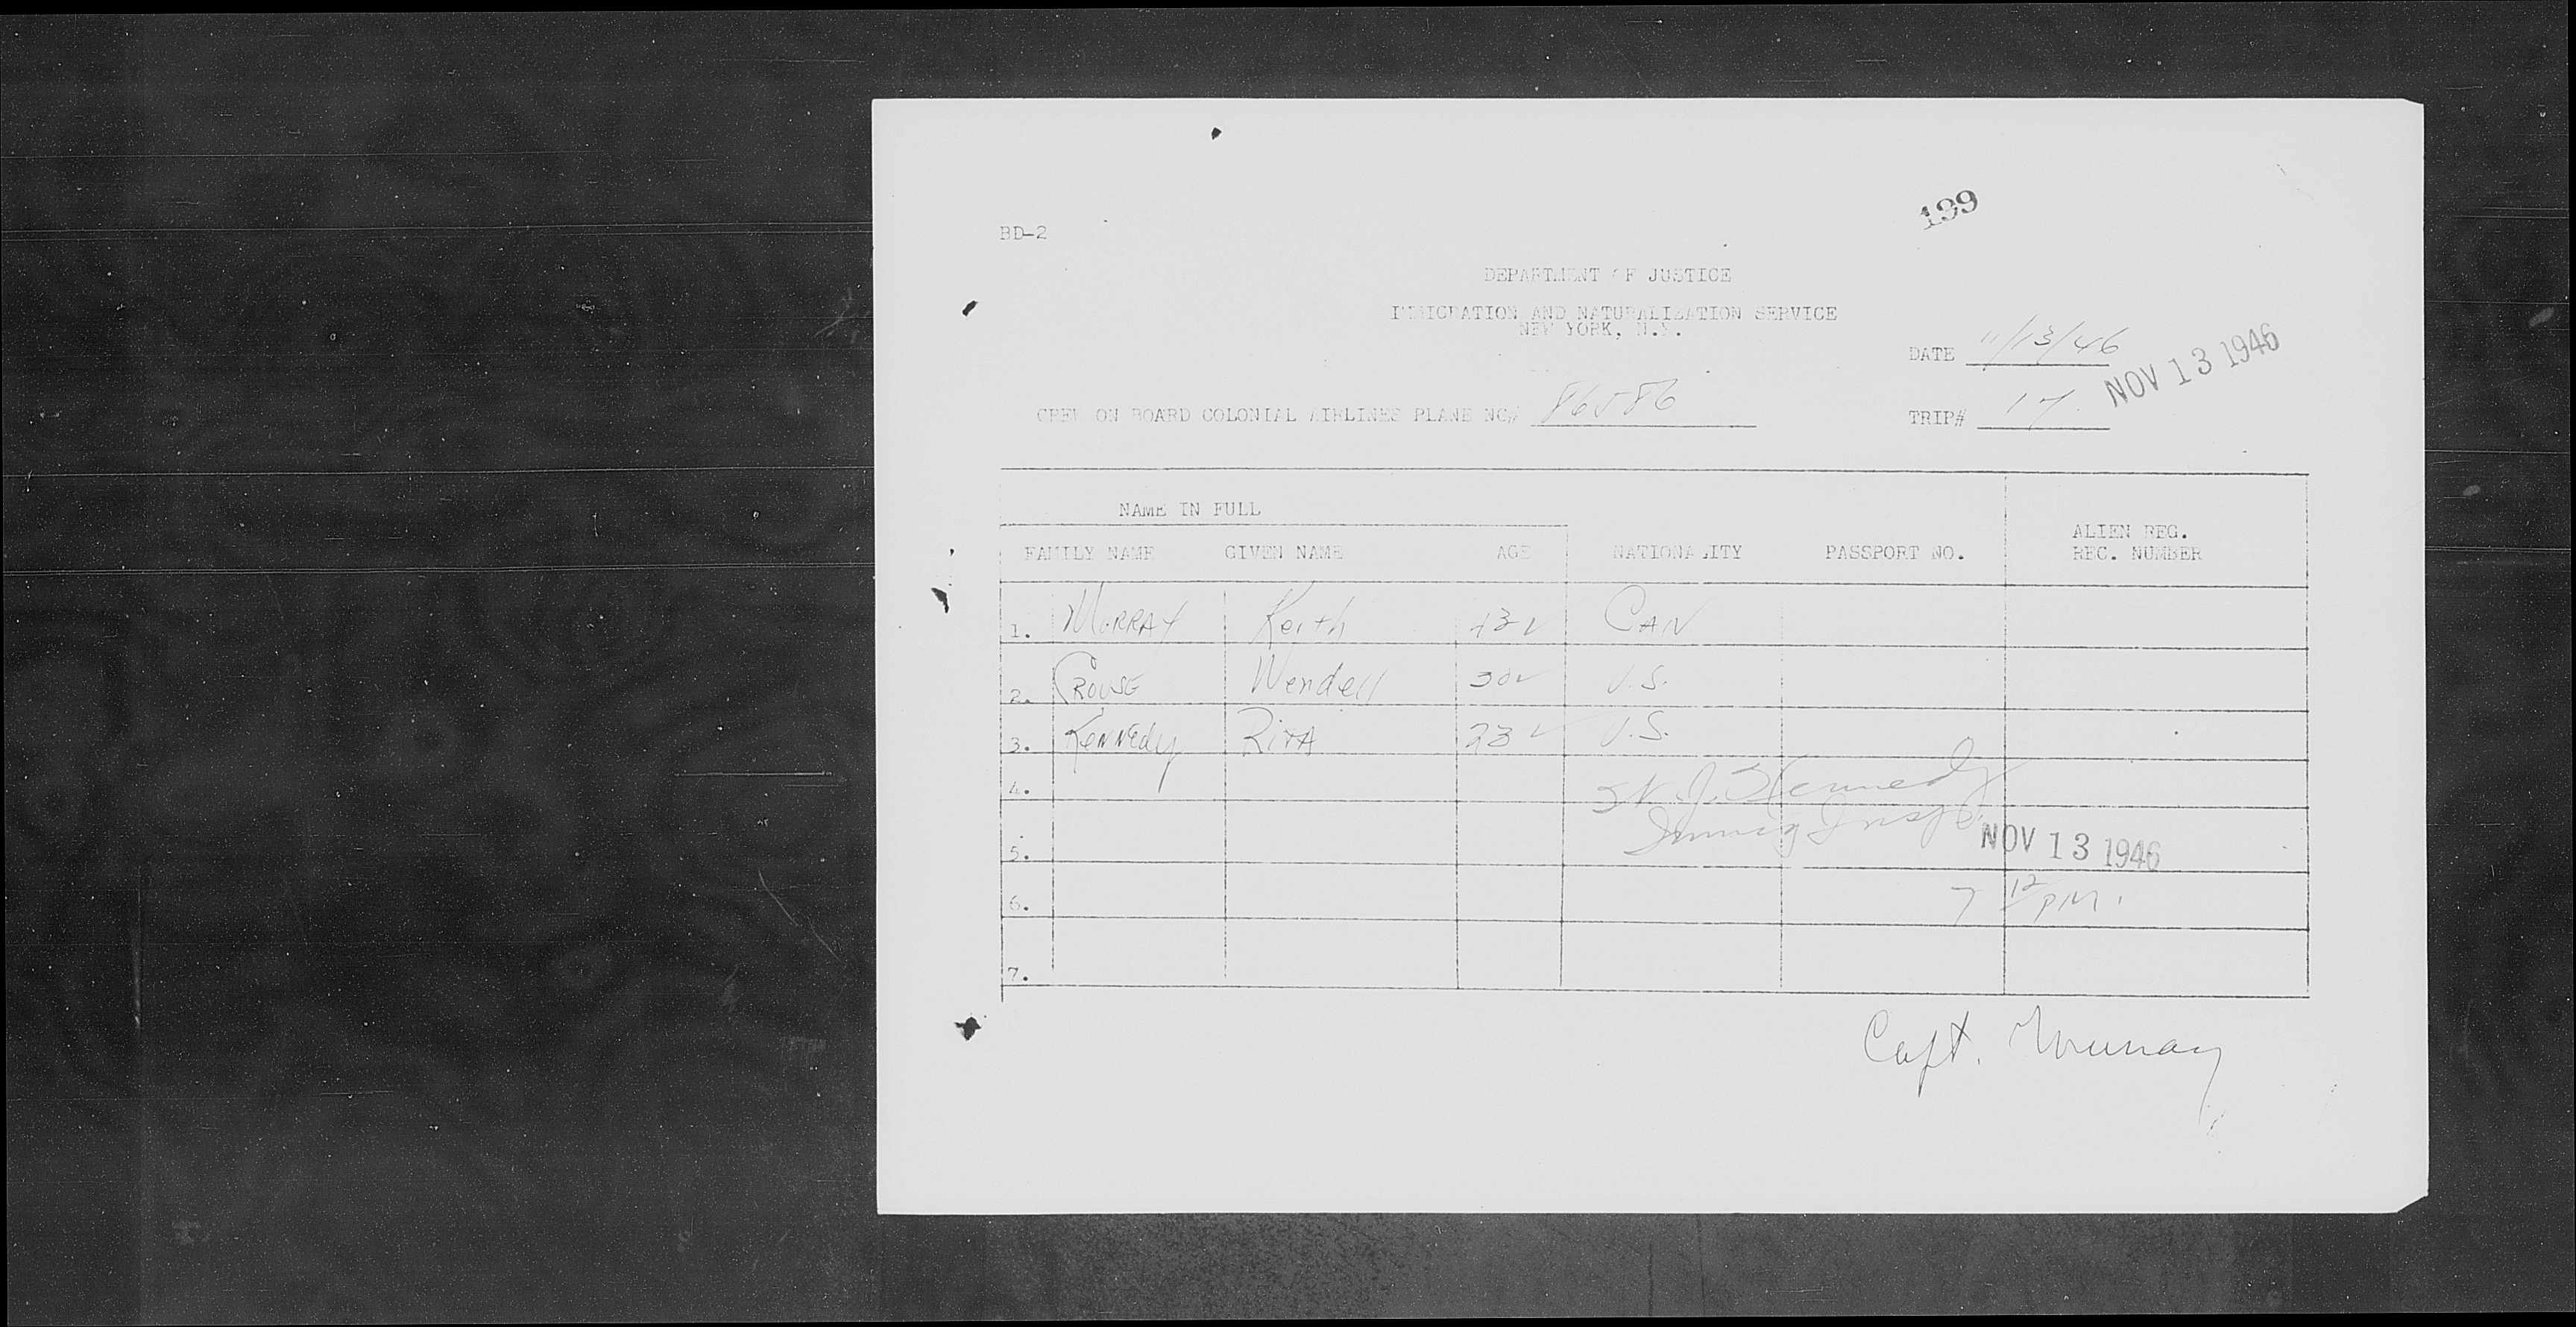 199
BD-2
DEPARTMENT OF JUSTICE
IMMIGRATION AND NATURALIZATION SERVICE
NEW YORK, N.Y.
DATE 11/13/46
NOV 13 1946
CREW ON BOARD COLONIAL AIRLINES PLANE NO# 86586
TRIP# 17
NAME IN FULL
FAMILY NAME GIVEN NAME AGE NATIONALITY PASSPORT NO. ALIEN REG. REC. NUMBER
1. MURRAY Keith CAN
2. CROUSE Wendell 30 U.S.
3. KENNEDY RITA 23 U.S.
4. J. Kennedy
5. Immig Insp.
NOV 13 1946
6. 7 12 PM.
7.
Capt. Murray